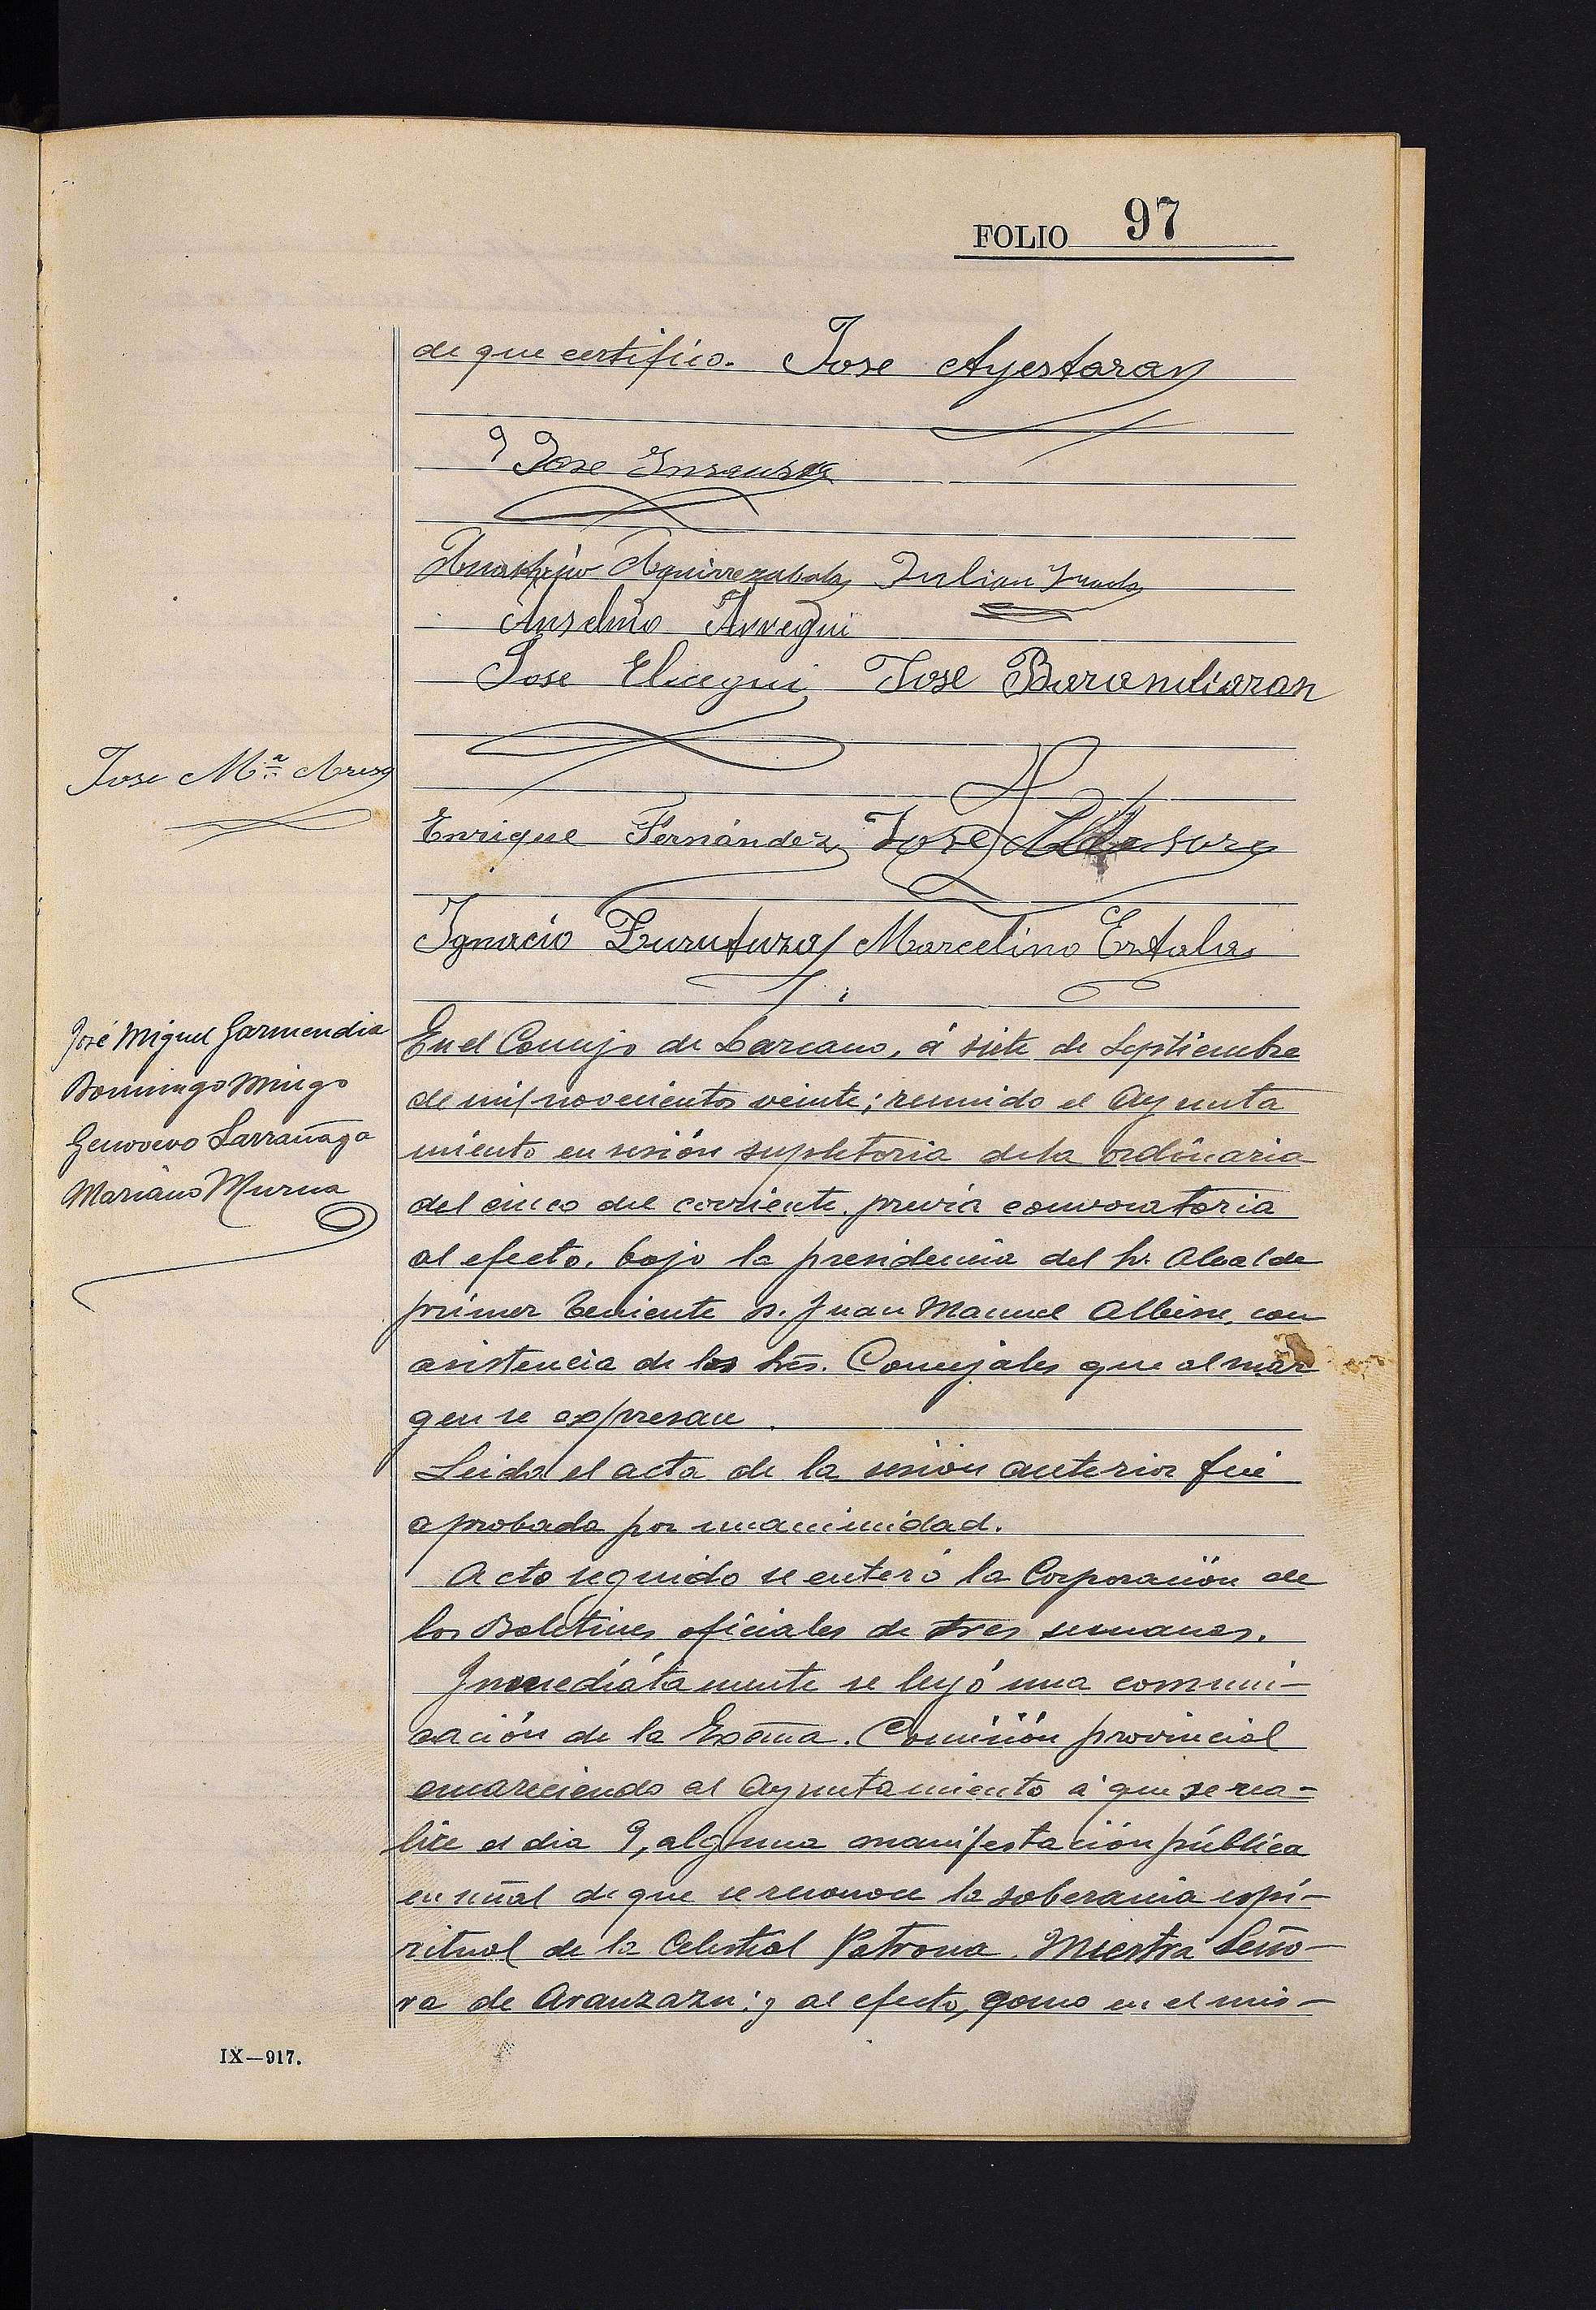 FOLIO 97
de que certifico. Jose Ayestaran
Jose Insausti
Anastasio Aguirrezabala Julian
Anselmo Arregui
Jose Elicegui Jose Barandiaran
Jose Mª
Enrique Fernández Jose
Ignacio Zurutuza Marcelino
José Miguel Garmendia
Domingo Mingo
Genovevo Larrañaga
Mariano Murua
En el Concejo de Lazcano, á siete de Septiembre
de mil novecientos veinte; reunido el Ayunta
miento en sesión supletoria de la ordinaria
del cinco del corriente, previa convocatoria
al efecto, bajo la presidencia del Sr. Alcalde
primer Teniente D. Juan Manuel Albisu, con
asistencia de los Sres. Concejales que al mar
gen se expresan.
Leida el acta de la sesión anterior fué
aprobada por unanimidad.
Acto seguido se enteró la Corporación de
los Boletines oficiales de tres semanas.
Inmediátamente se leyó una comuni-
cación de la Excma. Comisión provincial
encareciendo al Ayuntamiento á que se rea-
lice el dia 9, alguna manifestación pública
en señal de que se reconoce la soberania espi-
ritual de la Celestial Patrona, Nuestra Seño-
ra de Aranzazu; y al efecto, como en el mis-
IX—917.